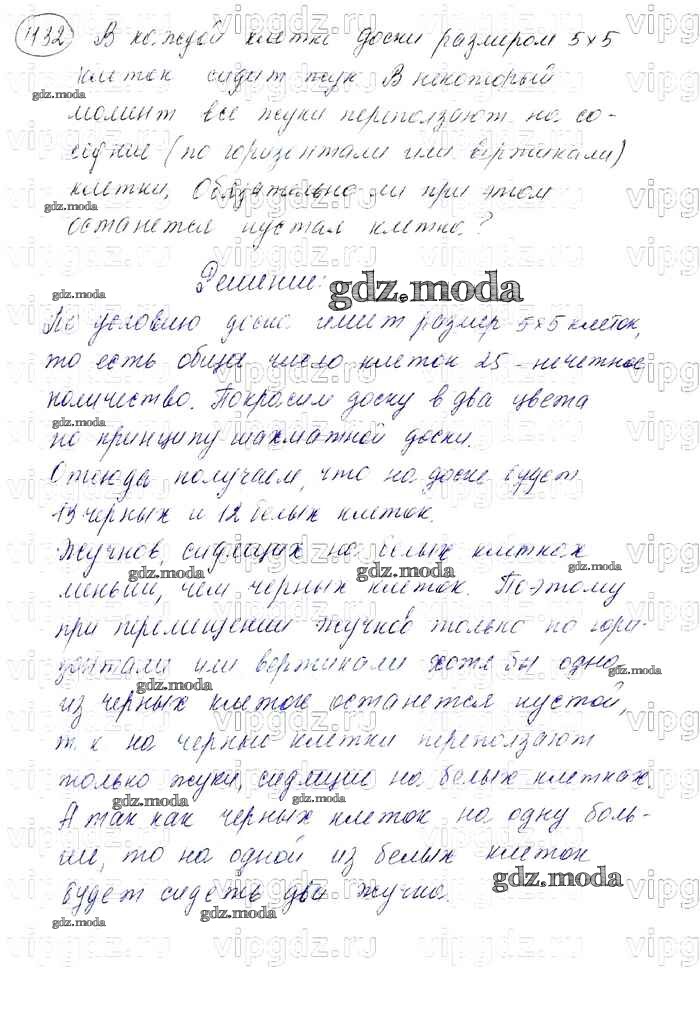 1132 В каждой клетке доски размером 5×5
клеток сидит жук. В некоторый
момент все жуки переползают на со-
седние (по горизонтали или вертикали)
клетки. Обязательно ли при этом
останется пустая клетка?
Решение:
По условию доска имеет размер 5×5 клеток,
то есть общее число клеток 25 - нечетное
количество. Покрасим доску в два цвета
по принципу шахматной доски.
Отсюда получаем, что на доске будет
13 черных и 12 белых клеток.
Жучков, сидящих на белых клетках
меньше, чем черных клеток. Поэтому
при перемещении жучков только по гори-
зонтали или вертикали хоже бы одна
из черных клеток останется пустой,
т. к на черные клетки переползают
только жуки, сидящие на белых клетках.
А так как черных клеток на одну боль-
ше, то на одной из белых клеток
будет сидеть два жучка.
gdz.moda
vipgdz.ru